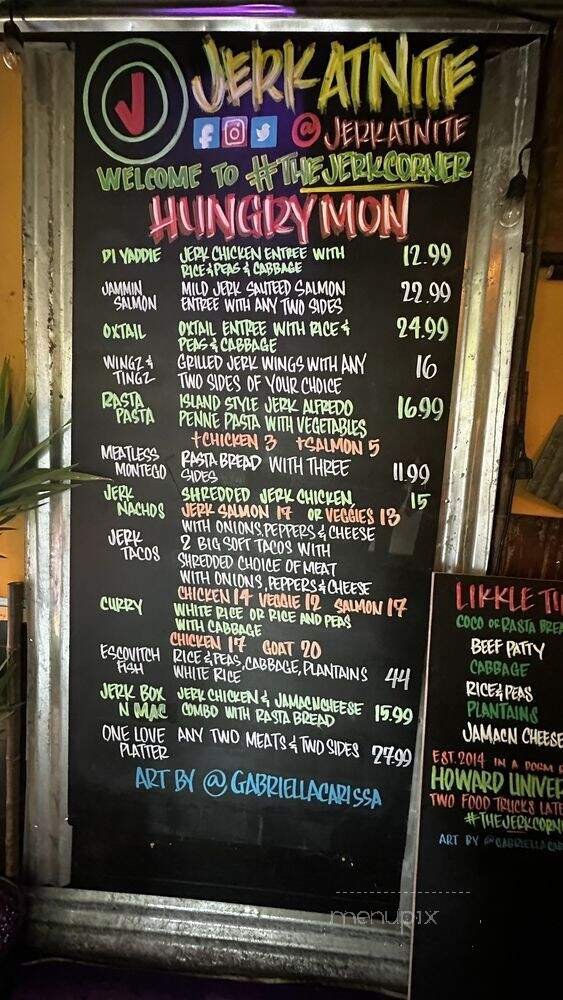 JERKATNITE
@JERKATNITE
WELCOME TO #THEJERKCORNER
HUNGRY MON
DI YADDIE JERK CHICKEN ENTREE WITH 12.99
RICE & PEAS & CABBAGE
JAMMIN MILD JERK SAUTEED SALMON 22.99
SALMON ENTREE WITH ANY TWO SIDES
OXTAIL OXTAIL ENTREE WITH RICE & 24.99
PEAS & CABBAGE
WINGZ & GRILLED JERK WINGS WITH ANY 16
TINGZ TWO SIDES OF YOUR CHOICE
RASTA ISLAND STYLE JERK ALFREDO 16.99
PASTA PENNE PASTA WITH VEGETABLES
+CHICKEN 3 +SALMON 5
MEATLESS RASTA BREAD WITH THREE 11.99
MONTEGO SIDES
JERK SHREDDED JERK CHICKEN 15
NACHOS JERK SALMON 17 OR VEGGIES 13
WITH ONIONS, PEPPERS & CHEESE
JERK 2 BIG SOFT TACOS WITH
TACOS SHREDDED CHOICE OF MEAT
WITH ONIONS, PEPPERS & CHEESE
CHICKEN 14 VEGGIE 12 SALMON 17
CURRY WHITE RICE OR RICE AND PEAS
WITH CABBAGE
CHICKEN 17 GOAT 20
ESCOVITCH RICE & PEAS, CABBAGE, PLANTAINS 44
FISH WHITE RICE
JERK BOX JERK CHICKEN & JAMACNCHEESE 15.99
N MAC COMBO WITH RASTA BREAD
ONE LOVE ANY TWO MEATS & TWO SIDES 27.99
PLATTER
ART BY @GABRIELLACARISSA
LIKKLE TI
COCO OR RASTA BREA
BEEF PATTY
CABBAGE
RICE & PEAS
PLANTAINS
JAMACN CHEESE
EST. 2014 IN A DORM
HOWARD UNIVER
TWO FOOD TRUCKS LATE
#THEJERKCORN
ART BY @GABRIELLACAR
menupix